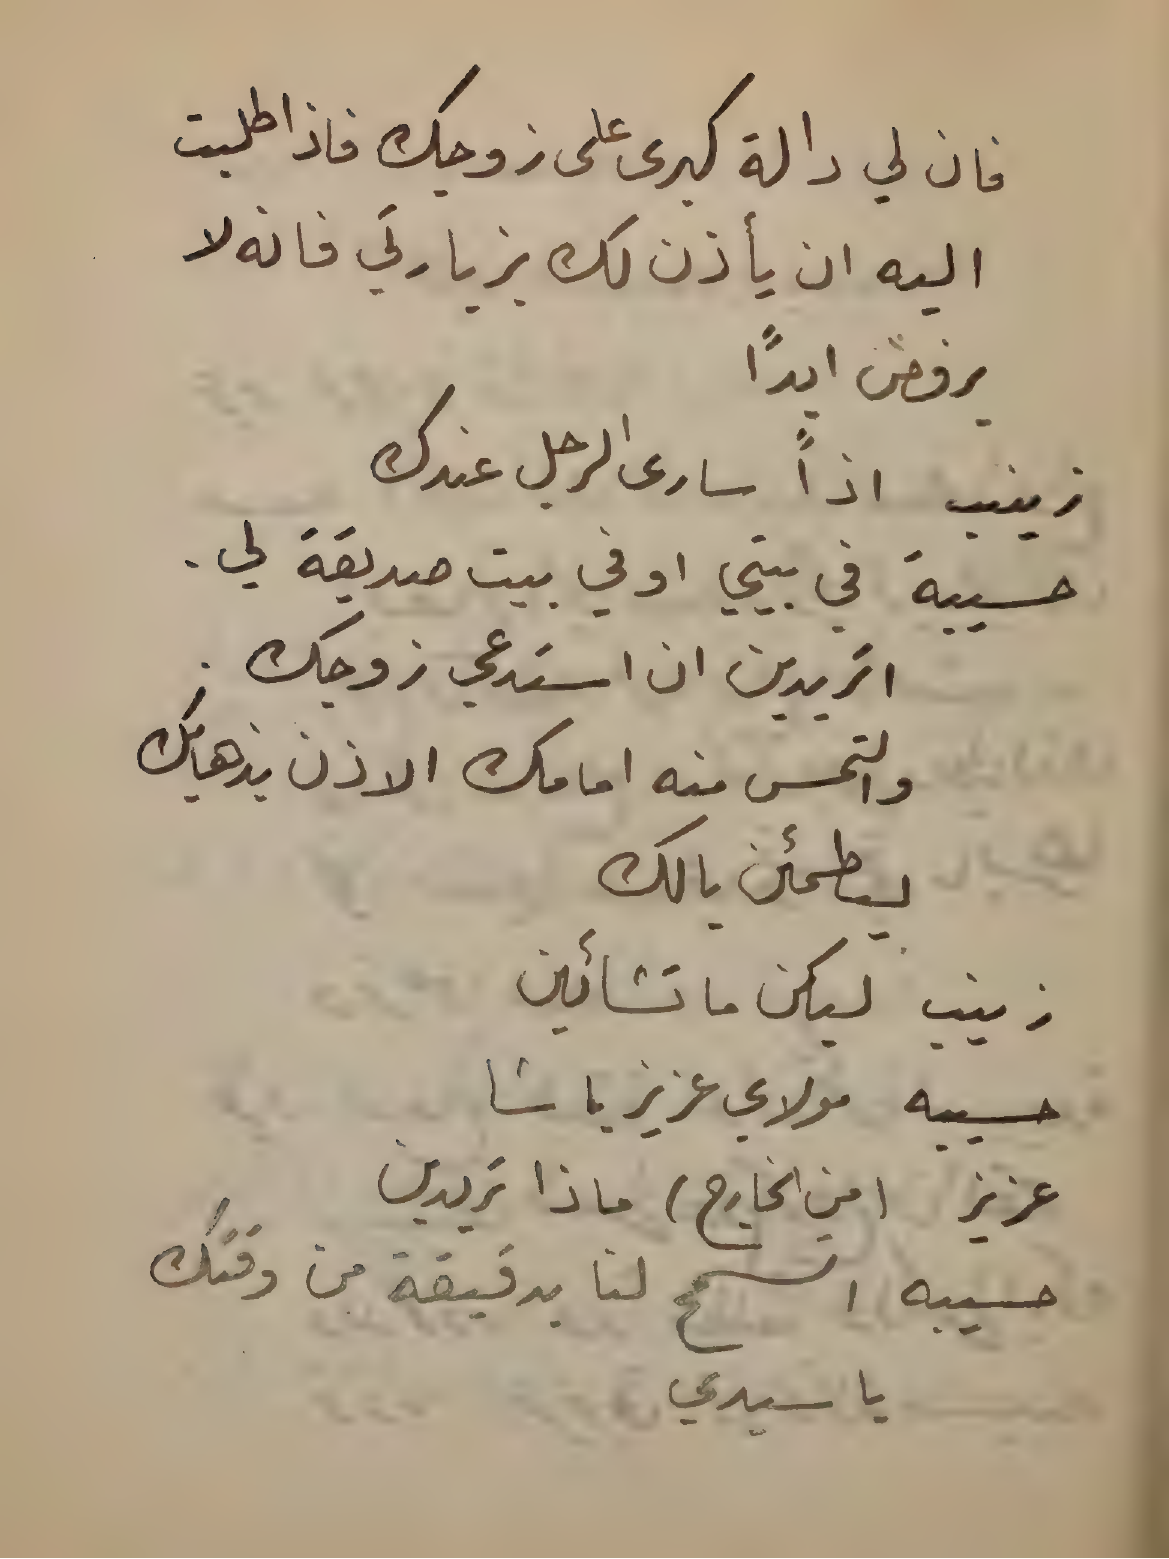 فان لي دالة كبرى على زوجك فاذا طلبت
اليه ان يأذن لك بزيارتي فانه لا
يرفض ابدًا
زينب اذاً سارى الرجل عندك
حسيبة في بيتي او في بيت صديقة لي.
اتريدين ان استدعي زوجك
والتمس منه امامك الاذن بذهابك
ليطمئن بالك
زينب ليكن ما تشائين
حسيبه مولاي عزيز باشا
عزيز (من الخارج) ماذا تريدين
حسيبه اتسمح لنا بدقيقة من وقتك
يا سيدي